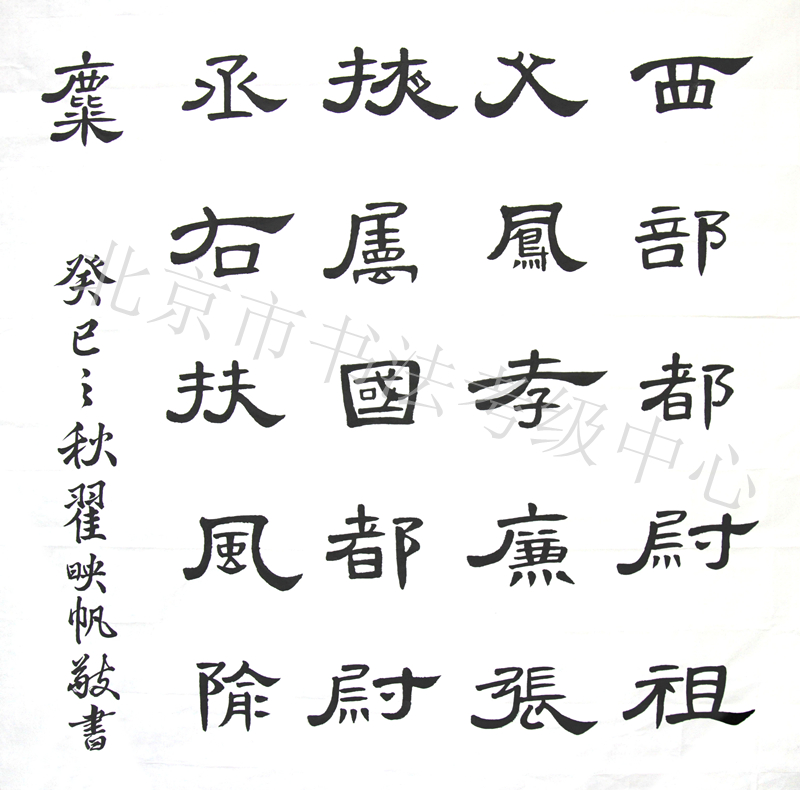 西部都尉祖
父鳳孝廉張
掖屬國都尉
丞右扶風隃
麋
癸巳之秋翟映帆敬書
北京市书法考级中心